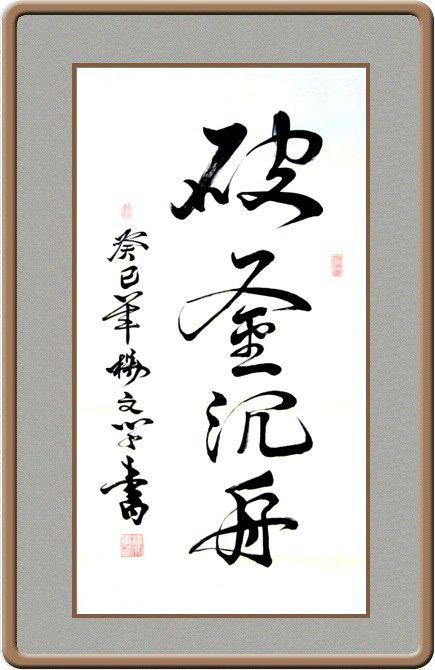 破釜沉舟
癸巳年杨文学書